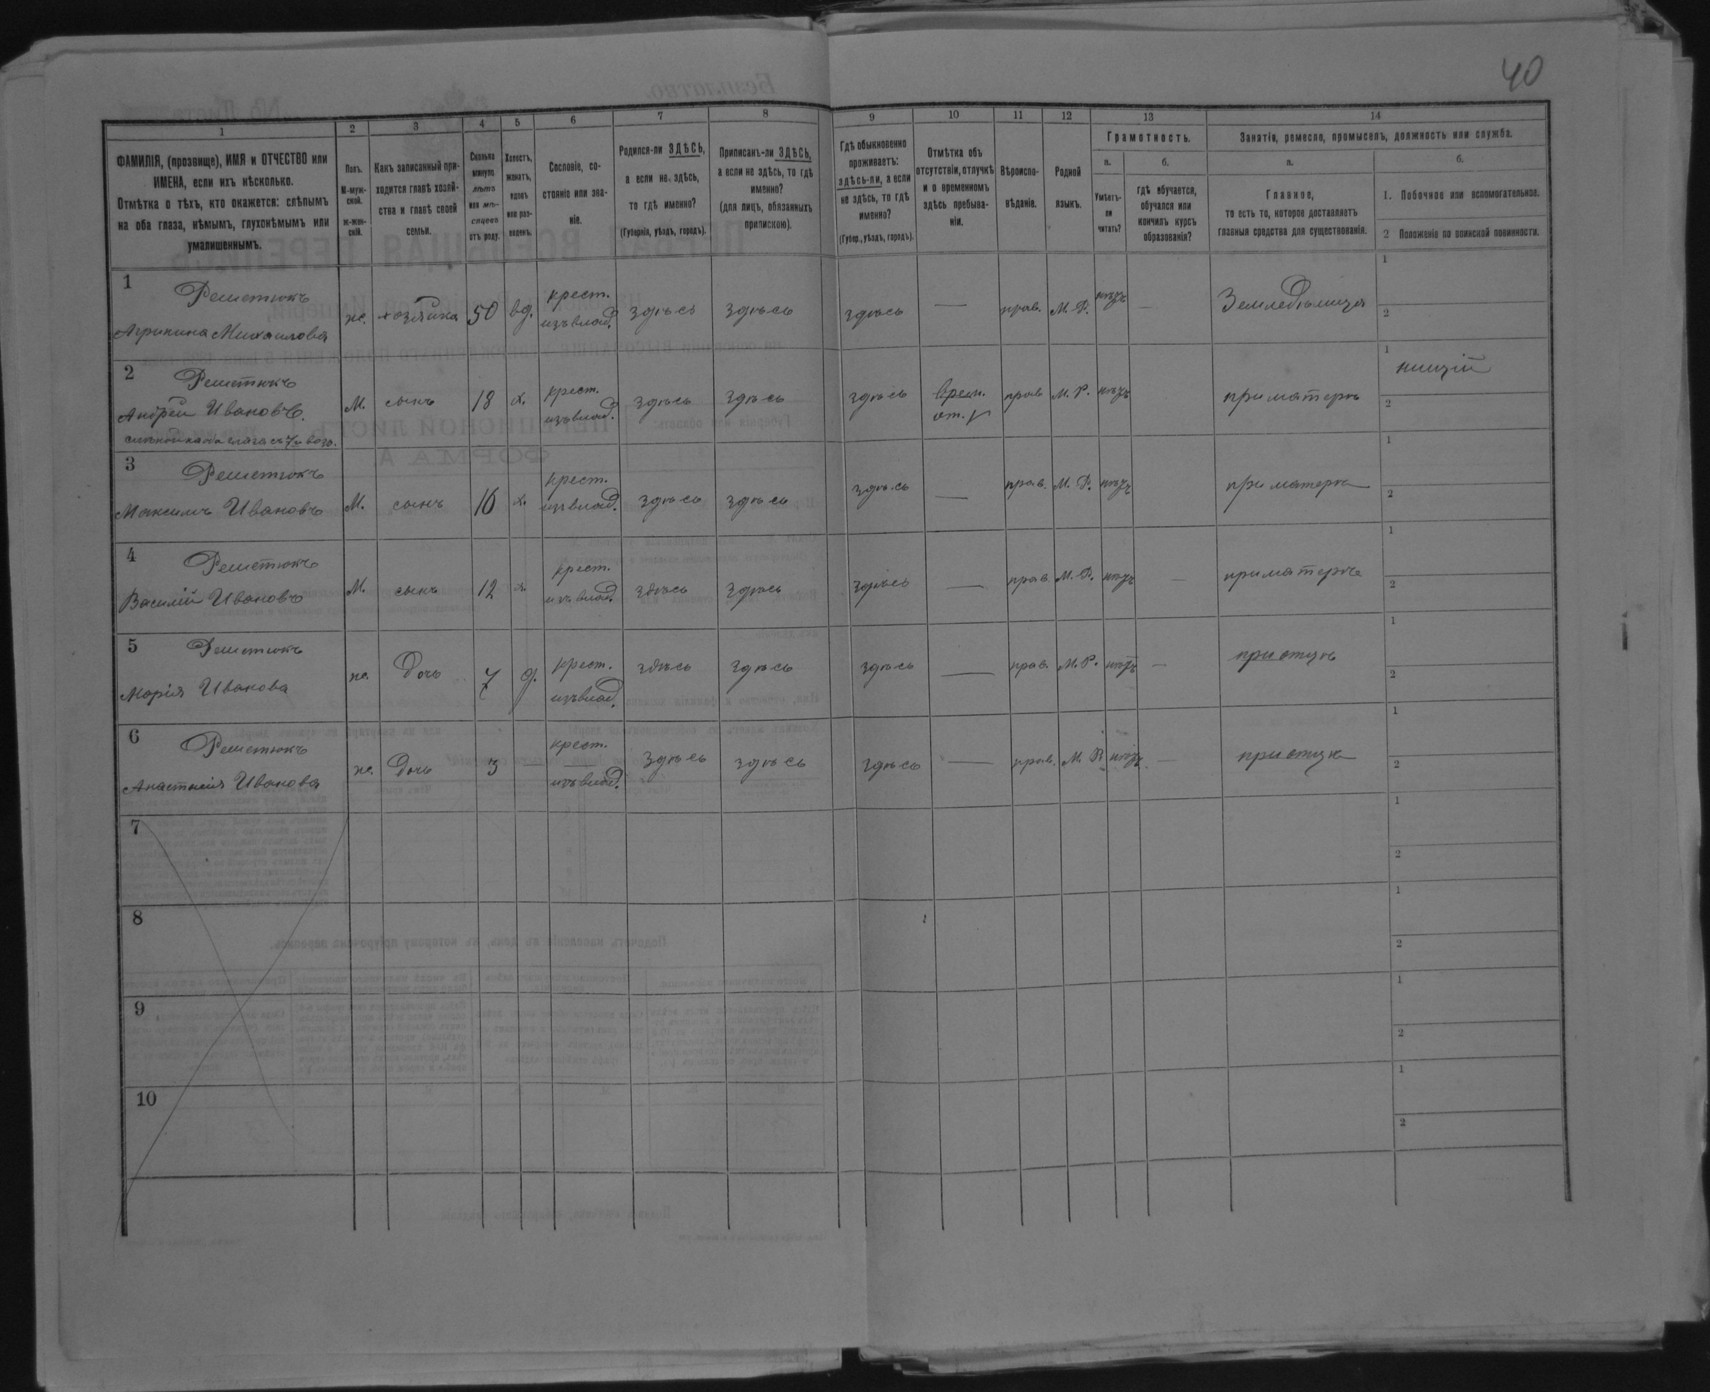 40
1 2 3 4 5 6 7 8 9 10 11 12 13 14
ФАМИЛІЯ, (прозвище), ИМЯ и ОТЧЕСТВО или
ИМЕНА, если ихъ нѣсколько.
Отмѣтка о тѣхъ, кто окажется: слѣпымъ
на оба глаза, нѣмымъ, глухонѣмымъ или
умалишеннымъ.
Полъ.
М-муж-
ской.
Ж-жен-
скій.
Какъ записанный при-
ходится главѣ хозяй-
ства и главѣ своей
семьи.
Сколько
минуло
лѣтъ
или мѣ-
сяцевъ
отъ роду.
Холостъ,
женатъ,
вдовъ
или раз-
веденъ.
Сословіе, со-
стояніе или зва-
ніе.
Родился-ли ЗДѢСЬ,
а если не здѣсь,
то гдѣ именно?
(Губернія, уѣздъ, городъ).
Приписанъ-ли ЗДѢСЬ,
а если не здѣсь, то гдѣ
именно?
(для лицъ, обязанныхъ
припискою).
Гдѣ обыкновенно
проживаетъ:
здѣсь-ли, а если
не здѣсь, то гдѣ
именно?
(Губер., уѣздъ, городъ).
Отмѣтка объ
отсутствіи, отлучкѣ
и о временномъ
здѣсь пребыва-
ніи.
Вѣроиспо-
вѣданіе.
Родной
языкъ.
Грамотность.
а.
Умѣетъ-
ли
читать?
б.
гдѣ обучается,
обучался или
кончилъ курсъ
образованія?
Занятіе, ремесло, промыселъ, должность или служба.
а.
Главное,
то есть то, которое доставляетъ
главныя средства для существованія.
б.
1. Побочное или вспомогательное.
2 Положеніе по воинской повинности.
1
Решетюкъ
Агрипина Михаилова
ж. хозяйка 50 вд. крест. изъ влад. здѣсь здѣсь здѣсь — прав. М. Р. нѣтъ — Земледѣлица
1
2
2
Решетюкъ
Андрей Ивановъ.
М. сынъ 18 х. крест. изъ влад. здѣсь здѣсь здѣсь врем. от. прав М. Р. нѣтъ при матери
1 нищій
2
3
Решетюкъ
Максимъ Ивановъ
М. сынъ 16 х. крест. изъ влад. здѣсь здѣсь здѣсь — прав. М. Р. нѣтъ при матери
1
2
4
Решетюкъ
Василій Ивановъ
М. сынъ 12 х. крест. изъ влад. здѣсь здѣсь здѣсь — прав. М. Р. нѣтъ — при матери
1
2
5
Решетюкъ
Марія Иванова
ж. Дочь 7 д. крест. изъ влад. здѣсь здѣсь здѣсь — прав. М. Р. нѣтъ — при отцѣ
1
2
6
Решетюкъ
Анастасія Иванова
ж. Дочь 3 — крест. изъ влад. здѣсь здѣсь здѣсь — прав. М. Р нѣтъ — при отцѣ
1
2
7
1
2
8
1
2
9
1
2
10
1
2